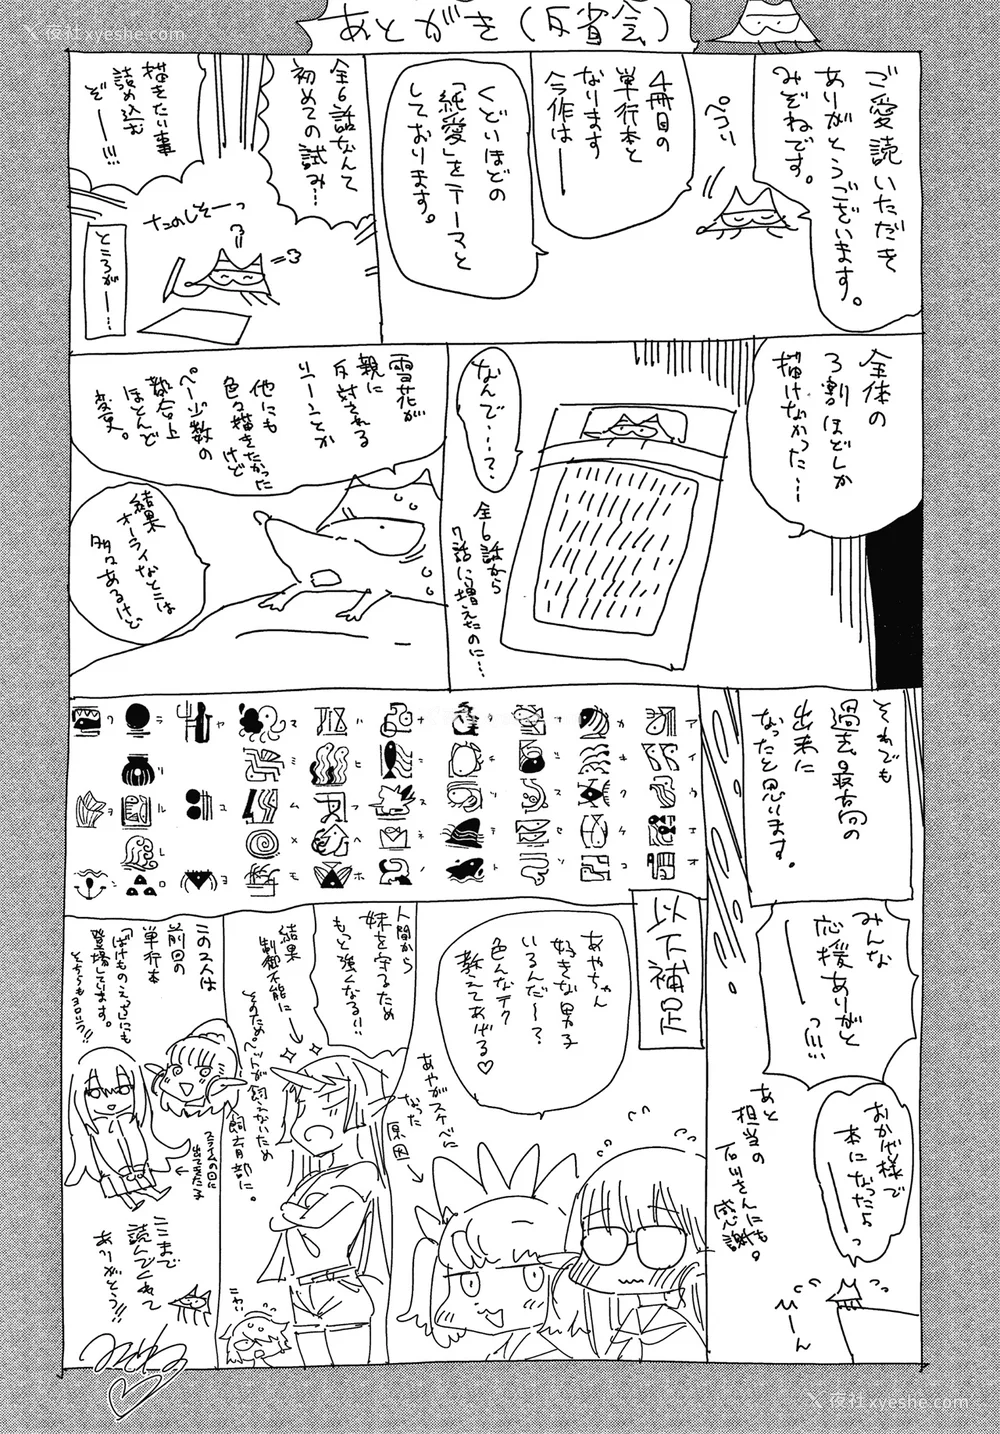 夜社xyeshe.com
あとがき(反省会)
ご愛読いただき
ありがとうございます。
みぞねです。
ぺこり
4冊目の
単行本と
なります
今作は―
くどいほどの
「純愛」をテーマと
しております。
全6話なんて
初めての試み…
描きたい事
詰め込む
ぞ――!!!
たのしそーっ
ところが―…
全体の
3割ほどしか
描けなかった…
なんで…―?
全6話から
7話に増えたのに…
雪花が
親に
反対される
シーンとか
他にも
色々描きたかった
けど
ページ数の
都合上
ほとんど
変更。
結果
オーライなとこは
多々あるけど
それでも
過去最高の
出来に
なったと思います。
ア
イ
ウ
エ
オ
カ
キ
ク
ケ
コ
サ
シ
ス
セ
ソ
タ
チ
ツ
テ
ト
ナ
ニ
ヌ
ネ
ノ
ハ
ヒ
フ
ヘ
ホ
マ
ミ
ム
メ
モ
ヤ
ユ
ヨ
ラ
リ
ル
レ
ロ
ワ
ヲ
ン
みんな
応援ありがと
―っ!!!
おかげ様で
本になったよ
――っ
あと
担当の
さんにも
感謝。
以下補足
あやちゃん
好きな男子
いるんだ〜?
色んなテク
教えてあげる♡
あやがスケベに
なった
原因→
人間から
妹を守るため
もっと強くなる!!
結果
制御不能に
そのため。
飼育部に。
ニャ
この2人は
前回の
単行本
「ばけものえっち」にも
登場しています。
そちらもヨロシク!!
スライムの回に
出てきた子
ここまで
読んでくれて
ありがとう!!
みぞね
夜社xyeshe.com